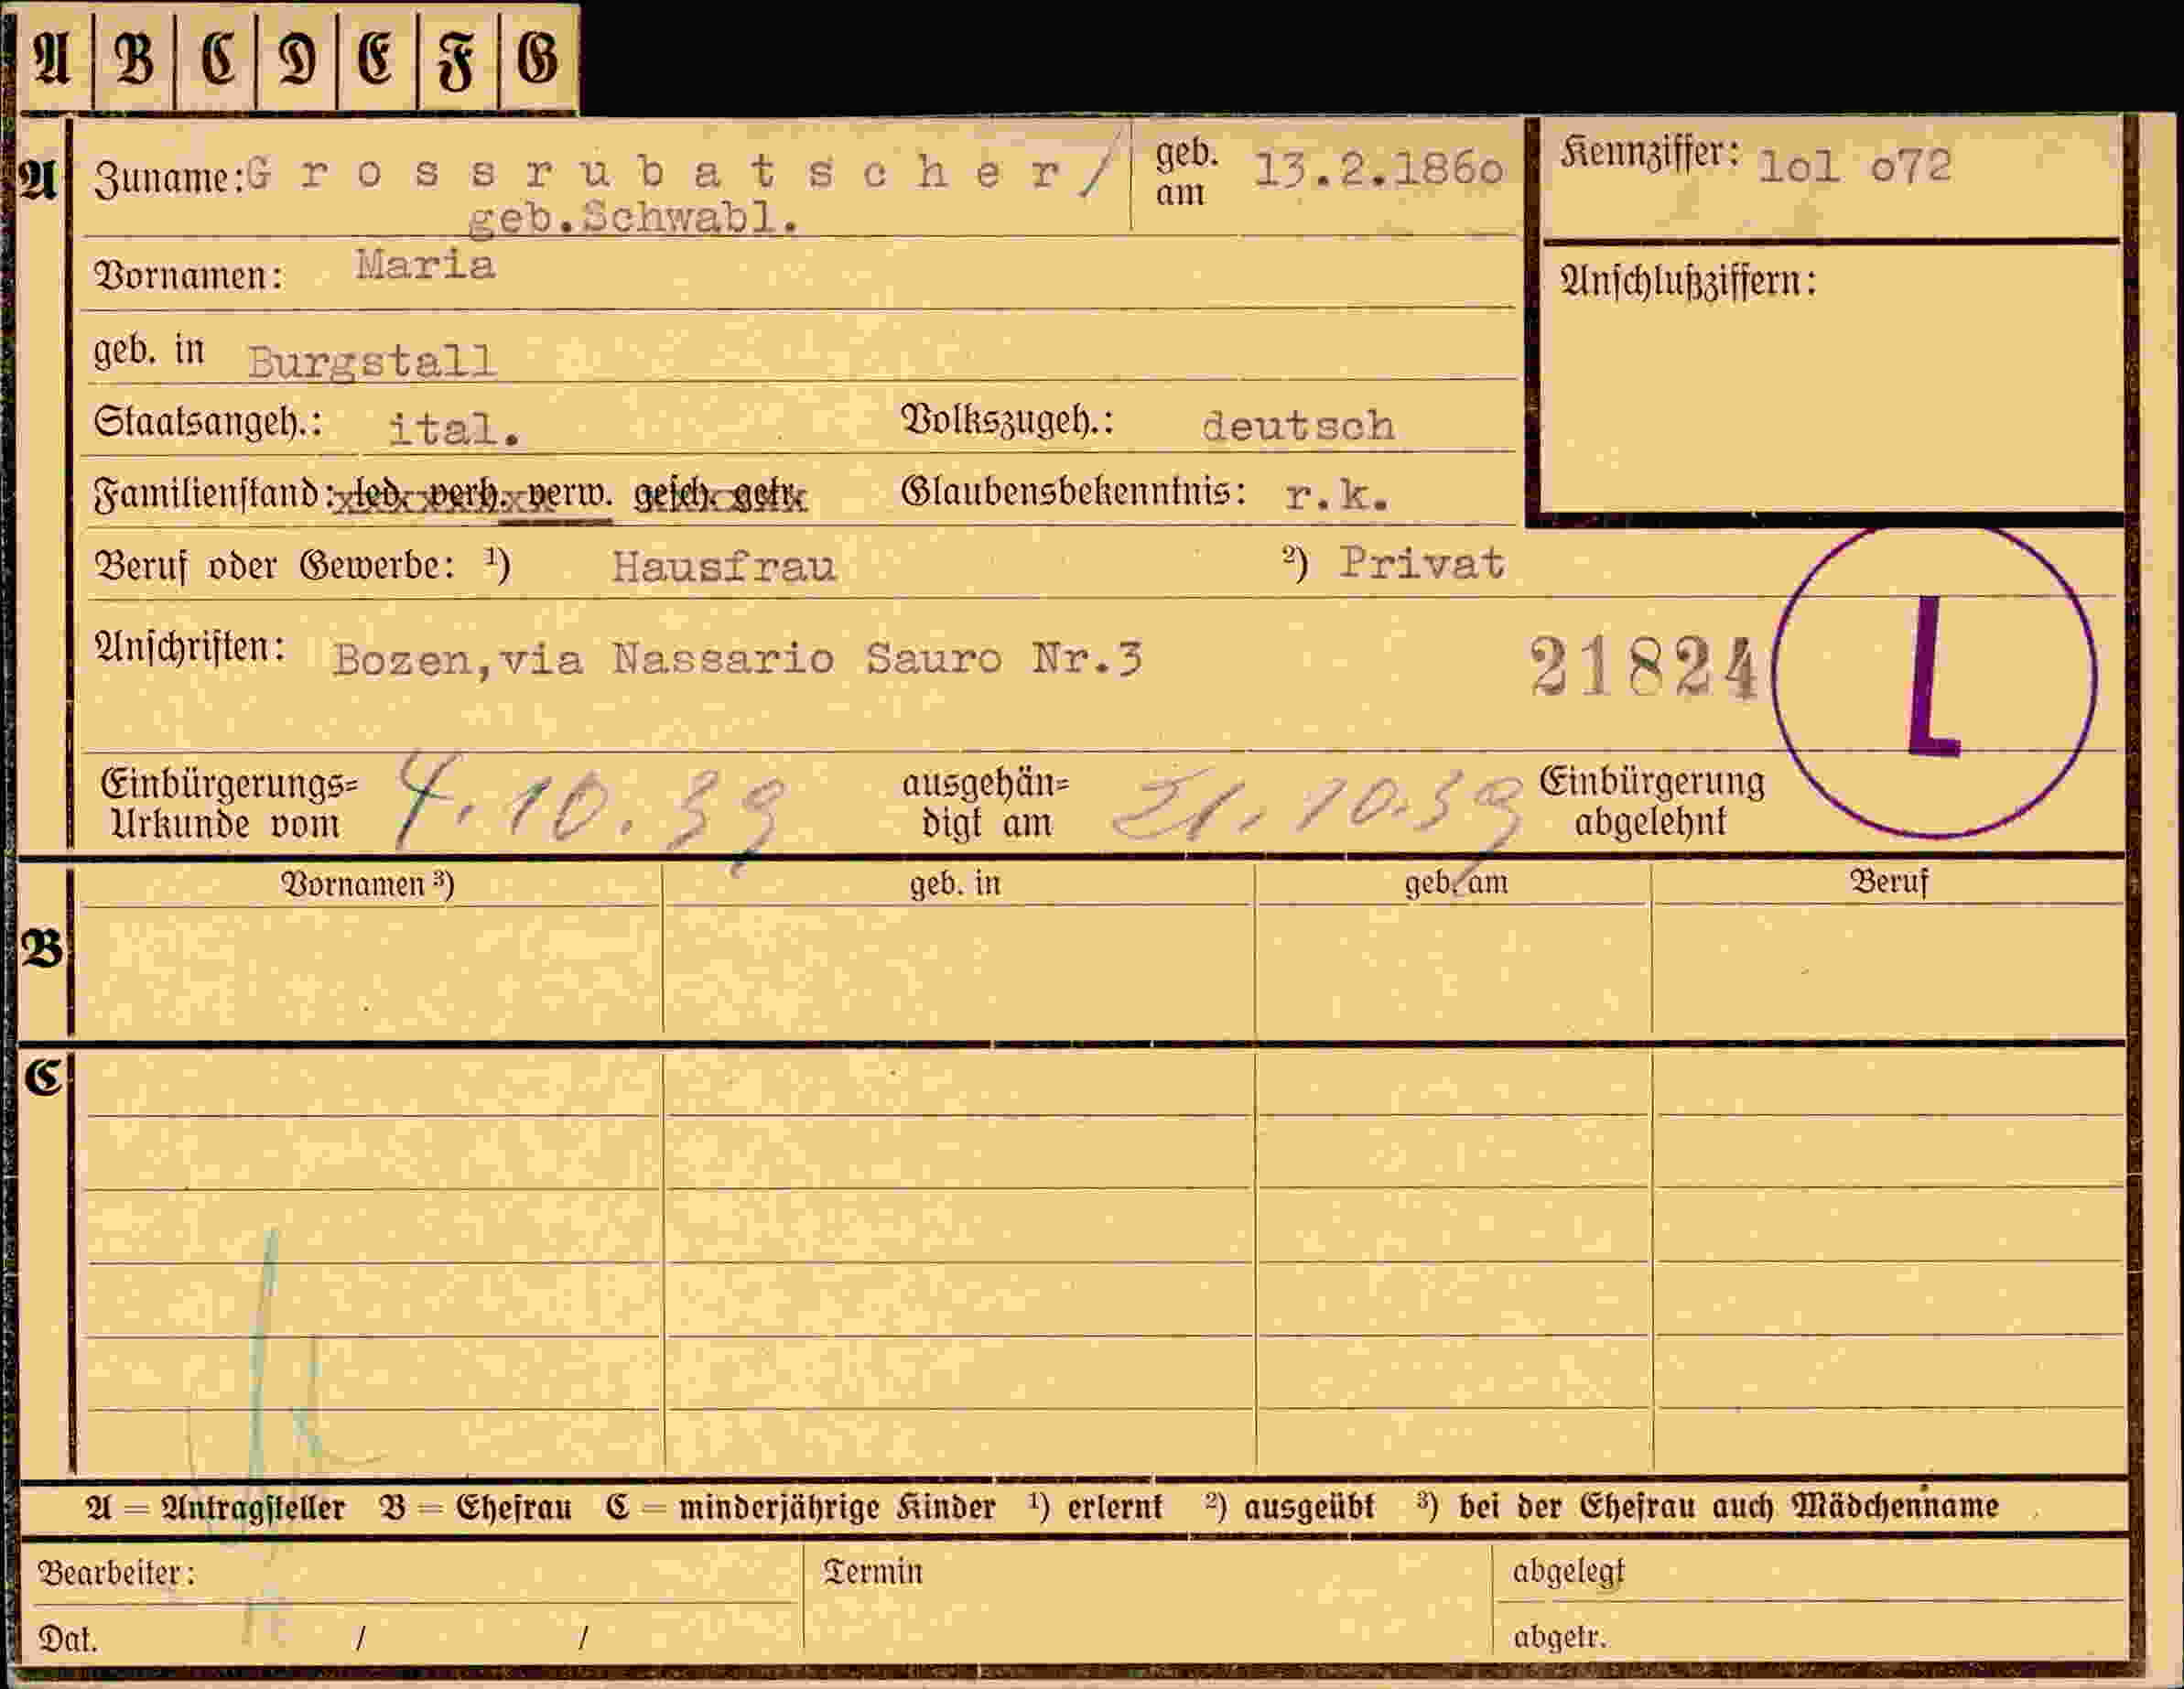 A B C D E F G
A Zuname: Grossrubatscher/ geb. am 13.2.186o Kennziffer: lol o72
geb.Schwabl.
Vornamen: Maria
Anschlußziffern:
geb. in Burgstall
Staatsangeh.: ital. Volkszugeh.: deutsch
Familienstand: led. verh. verw. gesch. getr. Glaubensbekenntnis: r.k.
Beruf oder Gewerbe: ¹) Hausfrau ²) Privat
Anschriften: Bozen,via Nassario Sauro Nr.3 21824 L
Einbürgerungs= Urkunde vom 4.10.39 ausgehän= digt am 21.10.39 Einbürgerung abgelehnt
Vornamen ³) geb. in geb. am Beruf
B
C
A = Antragsteller B = Ehefrau C = minderjährige Kinder ¹) erlernt ²) ausgeübt ³) bei der Ehefrau auch Mädchenname
Bearbeiter: Termin abgelegt
Dat. / / abgetr.